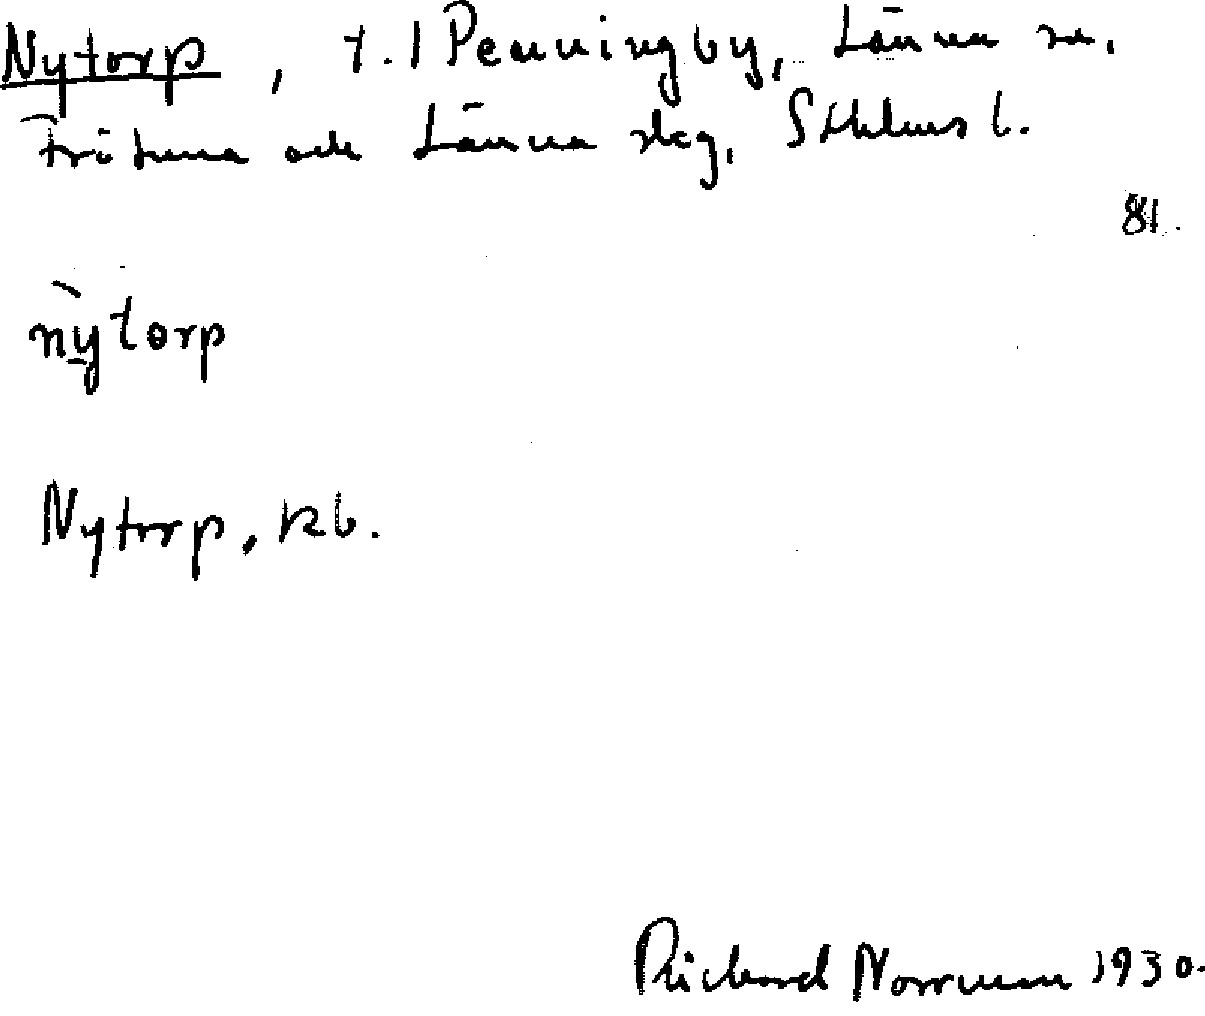 Nytorp, t. l Penningby, Länna sn,
Frötuna och Länna skg, Sthlms l.
81.
nỳtorp
Nytorp, kb.
Richard Norrman 1930.